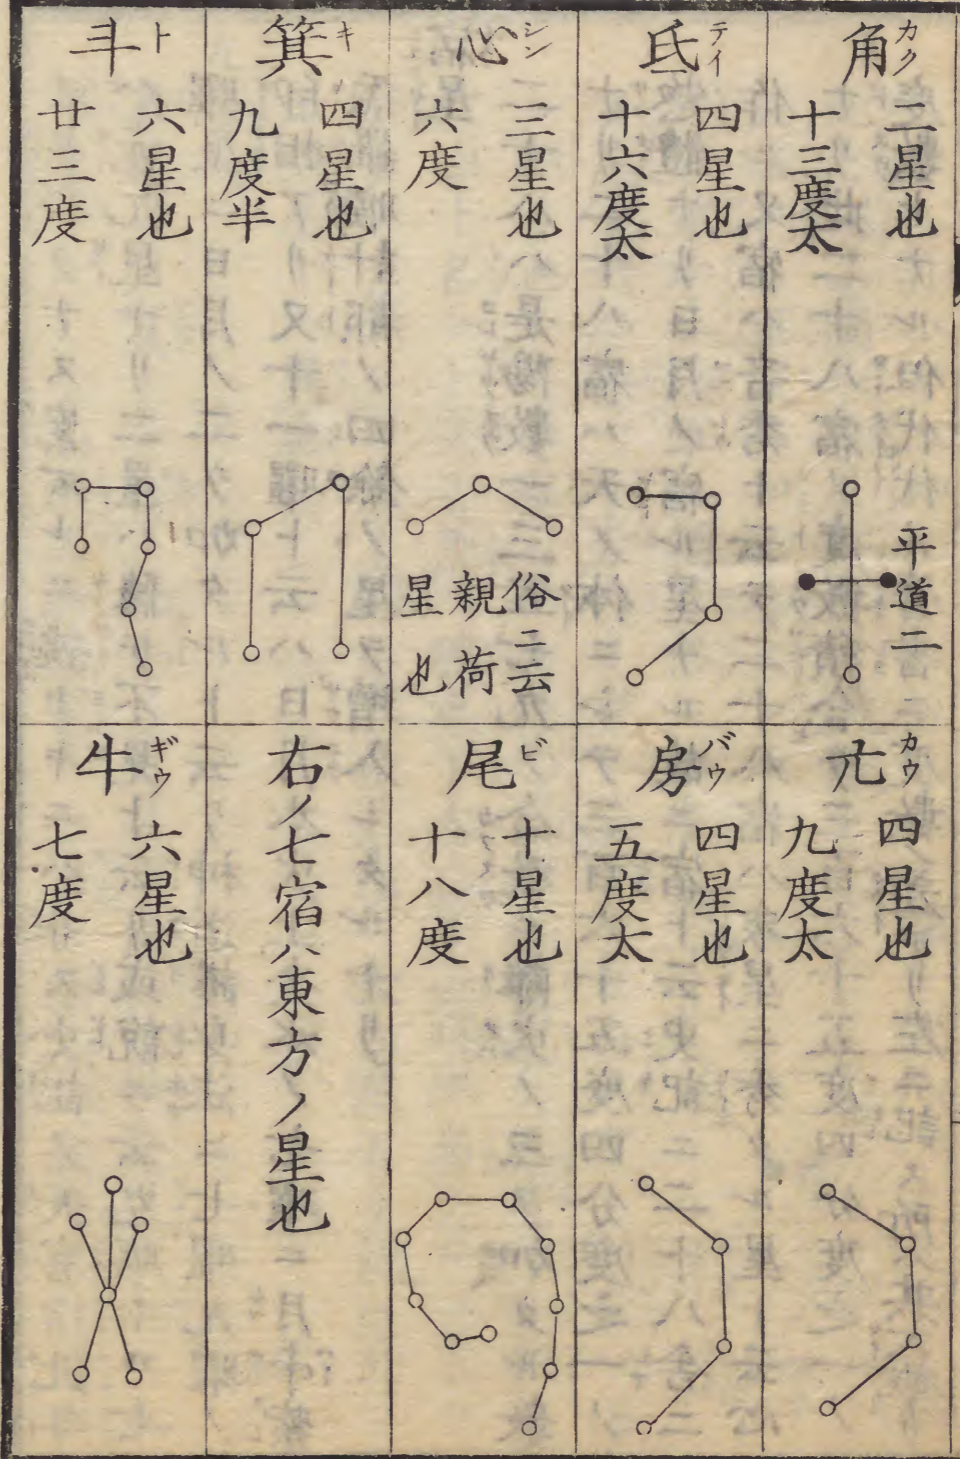 角 カク
二星也
十三度太
平道二
亢 カウ
四星也
九度太
氐 テイ
四星也
十六度太
房 バウ
四星也
五度太
心 シン
三星也
六度
俗ニ云
親荷
星也
尾 ビ
十星也
十八度
箕 キ
四星也
九度半
右ノ七宿ハ東方ノ星也
斗 ト
六星也
廿三度
牛 ギウ
六星也
七度